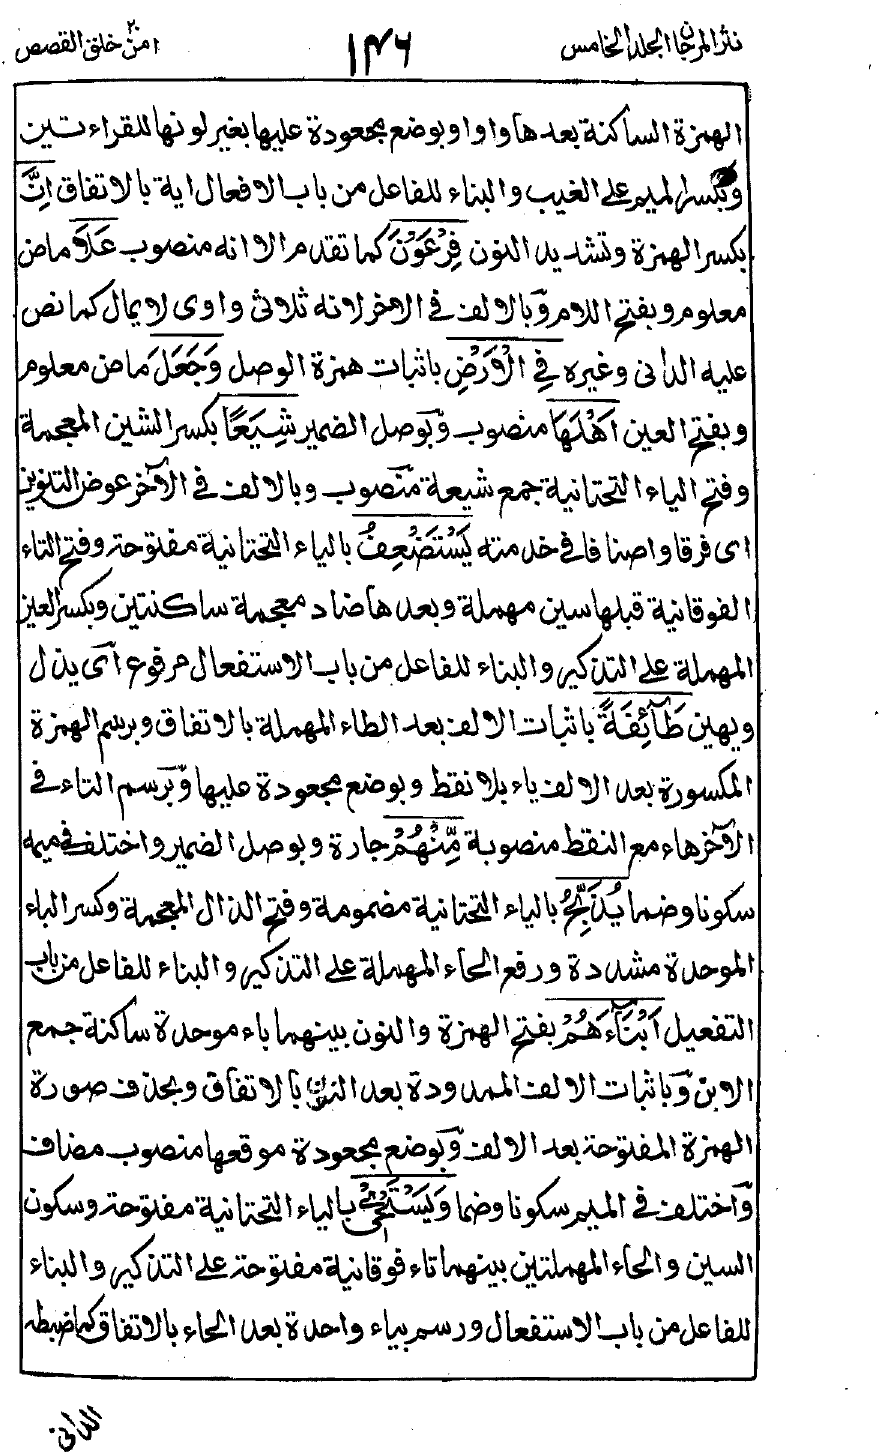 نثر المرجان الجلد الخامس ١٤٦ امن خلق ٢٠ القصص
الهمزة الساكنة بعدها واوا وبوضع مجعودة عليها بغير لونها للقراءتين
وبكسر الميم على الغيب والبناء للفاعل من باب الافعال اية بالاتفاق اِنَّ
بكسر الهمزة وتشديد النون فِرْعَوْنَ كما تقدم الا انه منصوب عَلَا ماض
معلوم وبفتح اللام وبالالف فى الاخر لانه ثلاثى واوى لا يمال كما نص
عليه الدانى وغيره فِي الْاَرْضِ باثبات همزة الوصل وَجَعَلَ ماض معلوم
وبفتح العين اَهْلَهَا منصوب وبوصل الضمير شِيَعًا بكسر الشين المعجمة
وفتح الياء التحتانية جمع شيعة منصوب وبالالف فى الآخر عوض التنوين
اى فرقا واصنافا فى خدمته يَسْتَضْعِفُ بالياء التحتانية مفتوحة وفتح التاء
الفوقانية قبلها سين مهملة وبعدها ضاد معجمة ساكنتين وبكسر العين
المهملة على التذكير والبناء للفاعل من باب الاستفعال مرفوع اى يذل
ويهين طَآئِفَةً باثبات الالف بعد الطاء المهملة بالاتفاق وبرسم الهمزة
المكسورة بعد الالف ياء بلا نقط وبوضع مجعودة عليها وبرسم التاء فى
الآخر هاء مع النقط منصوبة مِّنْهُمْ جارة وبوصل الضمير واختلف فى ميمه
سكونا وضما يُذَبِّحُ بالياء التحتانية مضمومة وفتح الذال المعجمة وكسر الباء
الموحدة مشددة ورفع الحاء المهملة على التذكير والبناء للفاعل من باب
التفعيل اَبْنَآءَهُمْ بفتح الهمزة والنون بينهما باء موحدة ساكنة جمع
الابن وباثبات الالف الممدودة بعد النون بالاتفاق وبحذف صورة
الهمزة المفتوحة بعد الالف وبوضع مجعودة موقعها منصوب مضاف
واختلف فى الميم سكونا وضما وَيَسْتَحْيٖ بالياء التحتانية مفتوحة وسكون
السين والحاء المهملتين بينهما تاء فوقانية مفتوحة على التذكير والبناء
للفاعل من باب الاستفعال ورسم بياء واحدة بعد الحاء بالاتفاق كما ضبطه
الدانى